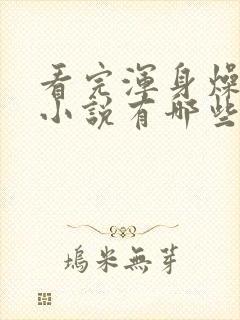 看完渾身燥
小說有哪些
塢米無芽